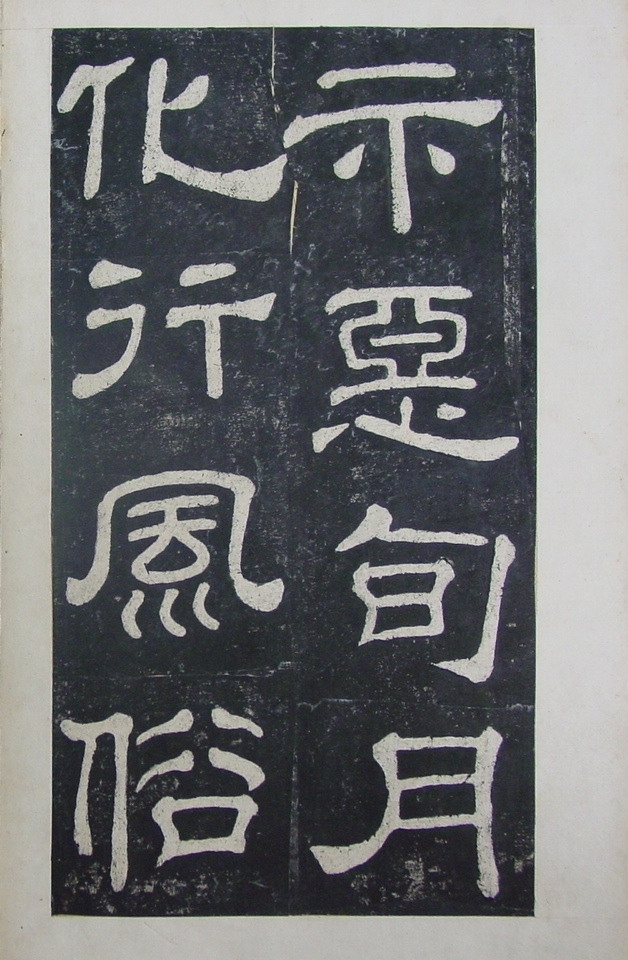 示惡旬月
化行風俗